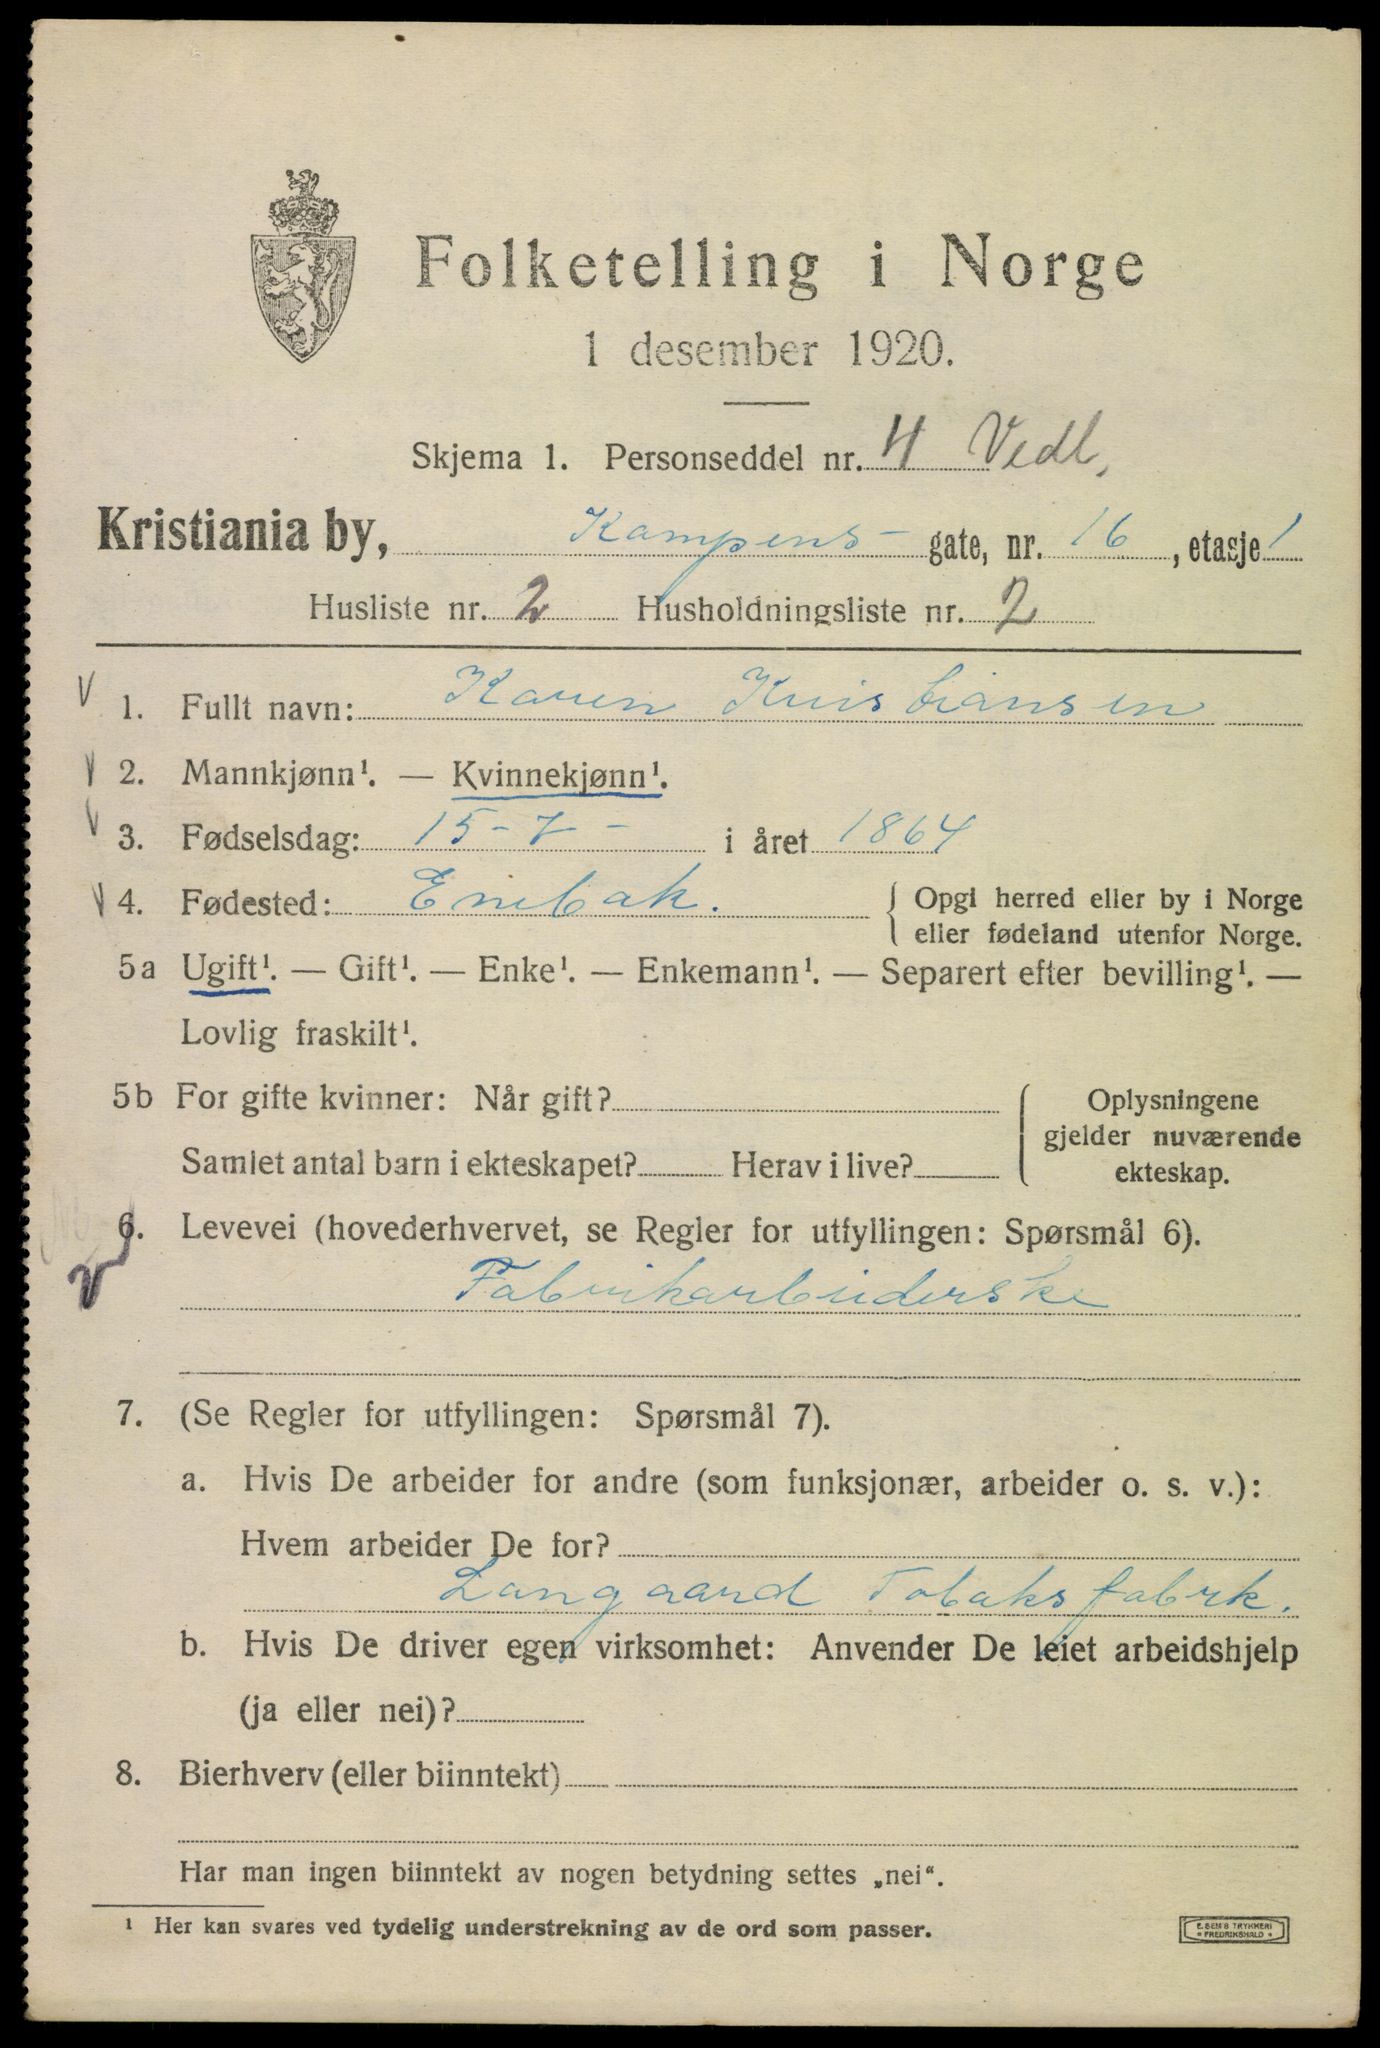 Folketelling i Norge
1 desember 1920.
Skjema 1. Personseddel nr. 4 Vedl,
Kristiania by, Kampens- gate, nr. 16, etasje 1
Husliste nr. 2 Husholdningsliste nr. 2
1. Fullt navn: Karen Kristiansen
2. Mannkjønn¹. — Kvinnekjønn¹.
3. Fødselsdag: 15-7- i året 1864
4. Fødested: Enebak. Opgi herred eller by i Norge
eller fødeland utenfor Norge.
5a Ugift¹. — Gift¹. — Enke¹. — Enkemann¹. — Separert efter bevilling¹. —
Lovlig fraskilt¹.
5b For gifte kvinner: Når gift? Oplysningene
gjelder nuværende
Samlet antal barn i ekteskapet? Herav i live? ekteskap.
6. Levevei (hovederhvervet, se Regler for utfyllingen: Spørsmål 6).
Fabrikarbeiderske
7. (Se Regler for utfyllingen: Spørsmål 7).
a. Hvis De arbeider for andre (som funksjonær, arbeider o. s. v.):
Hvem arbeider De for?
Langaard Tobaksfabrk.
b. Hvis De driver egen virksomhet: Anvender De leiet arbeidshjelp
(ja eller nei)?
8. Bierhverv (eller biinntekt)
Har man ingen biinntekt av nogen betydning settes „nei“.
¹ Her kan svares ved tydelig understrekning av de ord som passer.
E. SEM'S TRYKKERI
FREDRIKSHALD